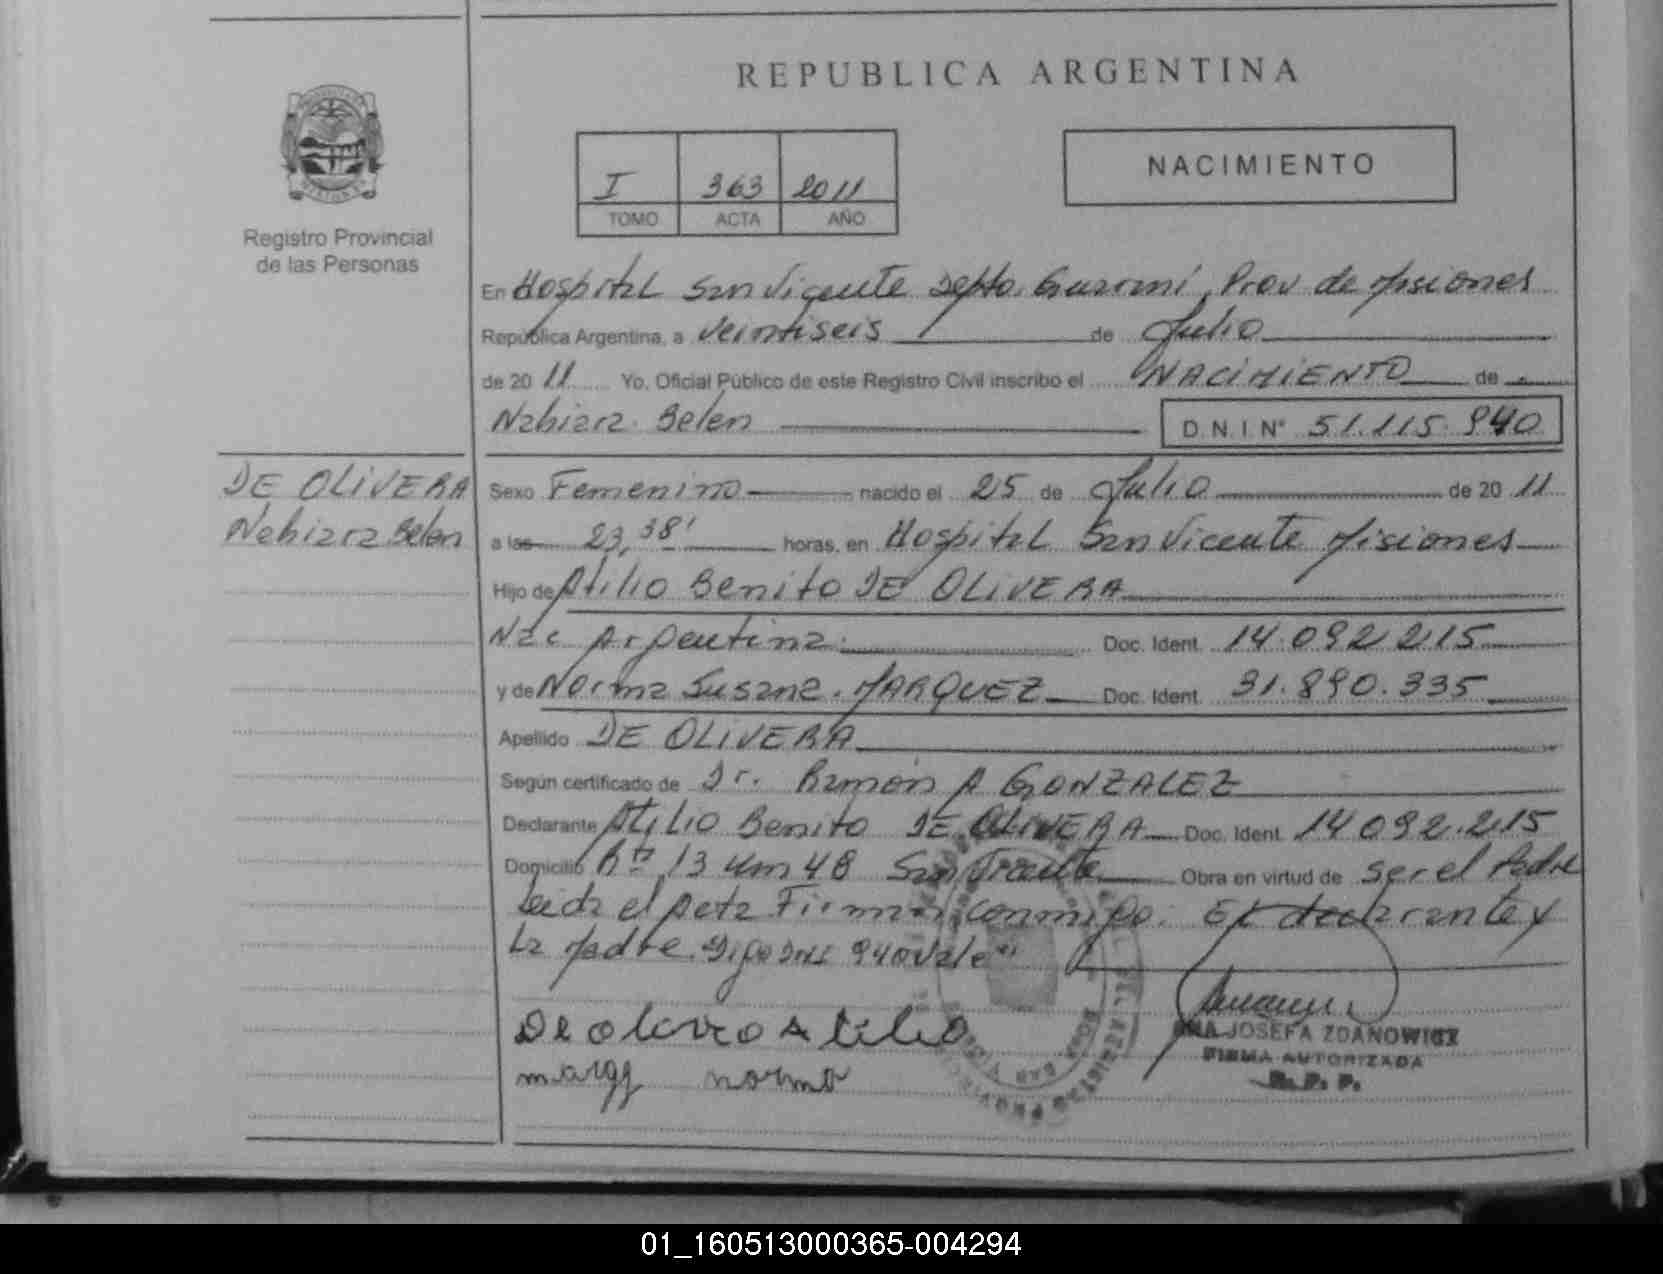 REPUBLICA ARGENTINA
NACIMIENTO
I 363 2011
TOMO ACTA AÑO
Registro Provincial
de las Personas
En Hospital San Vicente Depto. Guarani, Prov de Misiones
República Argentina, a Veintiseis de Julio
de 2011 Yo, Oficial Público de este Registro Civil inscribo el NACIMIENTO de
Nahiara Belen D.N.I. N° 51.115.940
DE OLIVERA
Nahiara Belen
Sexo Femenino nacido el 25 de Julio de 2011
a las 23,38' horas, en Hospital San Vicente Misiones
Hijo de Atilio Benito DE OLIVERA
Nac Argentina. Doc. Ident. 14.092.215
y de Norma Susana. MARQUEZ Doc. Ident. 31.890.335
Apellido DE OLIVERA
Según certificado de Dr. Ramón A GONZALEZ
Declarante Atilio Benito DE OLIVERA Doc. Ident. 14.092.215
Domicilio Rta 13 Km 48 San Vicente Obra en virtud de ser el Padre
Leida el Acta Firman conmigo. El declarante y
La Madre. Digo DNI 940 Vale"
De olivera Atilio
norma
ANA JOSEFA ZDANOWICZ
FIRMA AUTORIZADA
R. P. P.
01_160513000365-004294